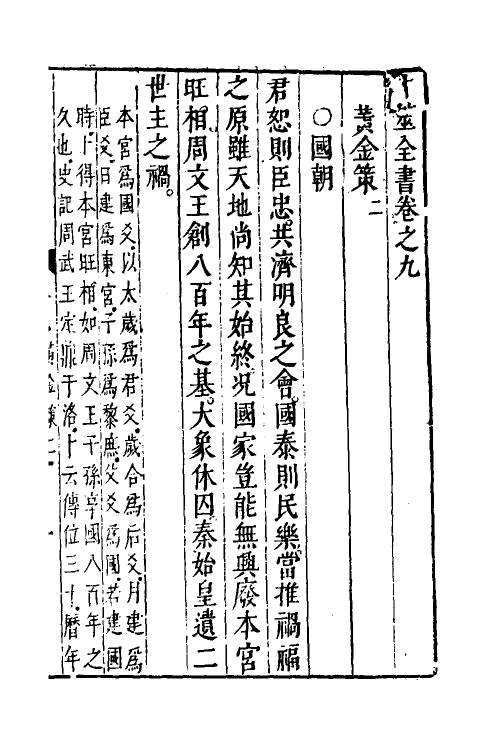 卜筮全書卷之九
黃金策二
○國朝
君恕則臣忠。共濟明良之會。國泰則民樂。當推禍福
之原。雖天地尚知其始終。況國家豈能無興廢。本宮
旺相。周文王創八百年之基。大象休囚。秦始皇遺二
世主之禍。
本宮爲國爻。以太歲爲君爻。歲合爲后爻。月建爲
臣爻。日建爲東宮。子孫爲黎庶。父爻爲國。若建國
時。卜得本宮旺相。如周文王子孫享國八百年之
久也。史記周武王定鼎于洛。卜云傳位三十。曆年
黃金策二 一